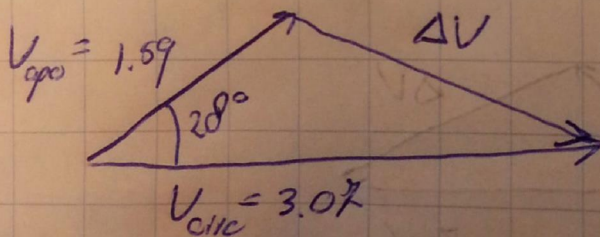 V_apo = 1.59
ΔV
28°
V_circ = 3.07